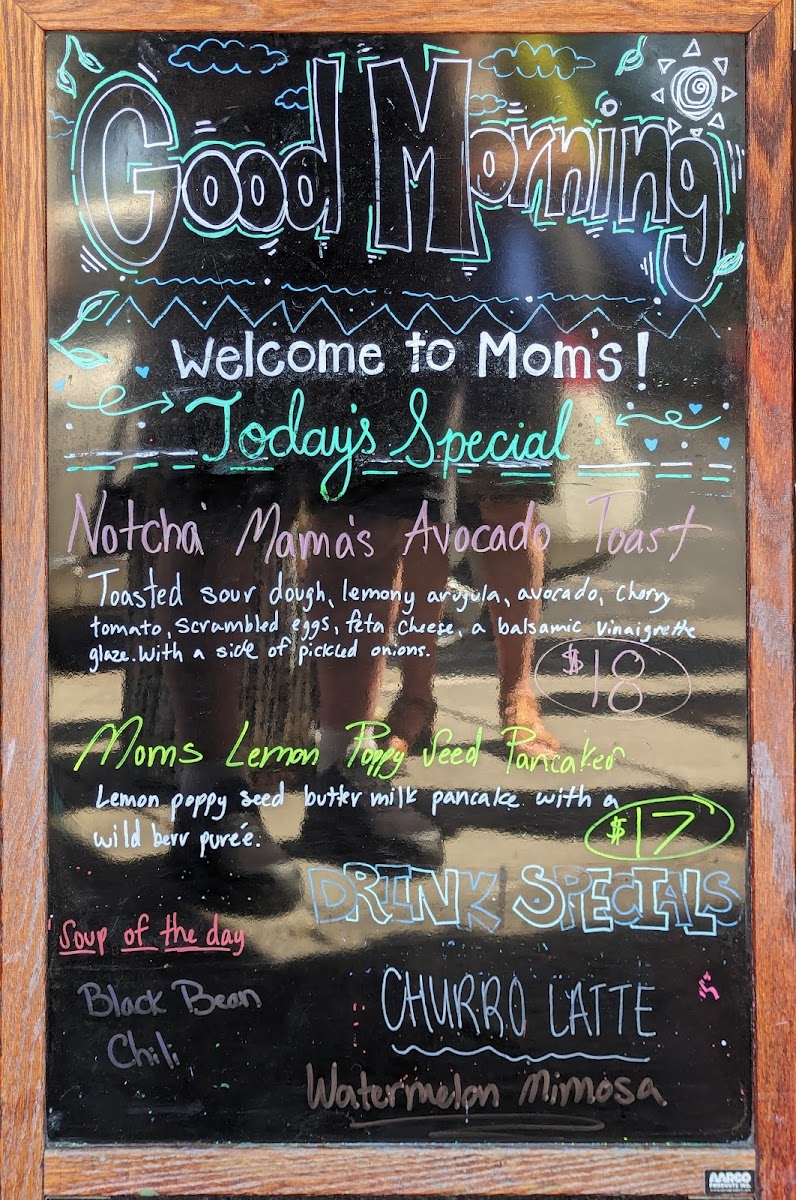 Good Morning
Welcome to Mom's!
Today's Special
Notcha' Mama's Avocado Toast
Toasted sour dough, lemony arugula, avocado, cherry
tomato, scrambled eggs, feta cheese, a balsamic vinaigrette
glaze. With a side of pickled onions.
$18
Moms Lemon Poppy Seed Pancakes
Lemon poppy seed butter milk pancake with a
wild berr pureé.
$17
DRINK SPECIALS
Soup of the day
Black Bean
Chili
CHURRO LATTE
Watermelon Mimosa
AARCO
PRODUCTS INC.